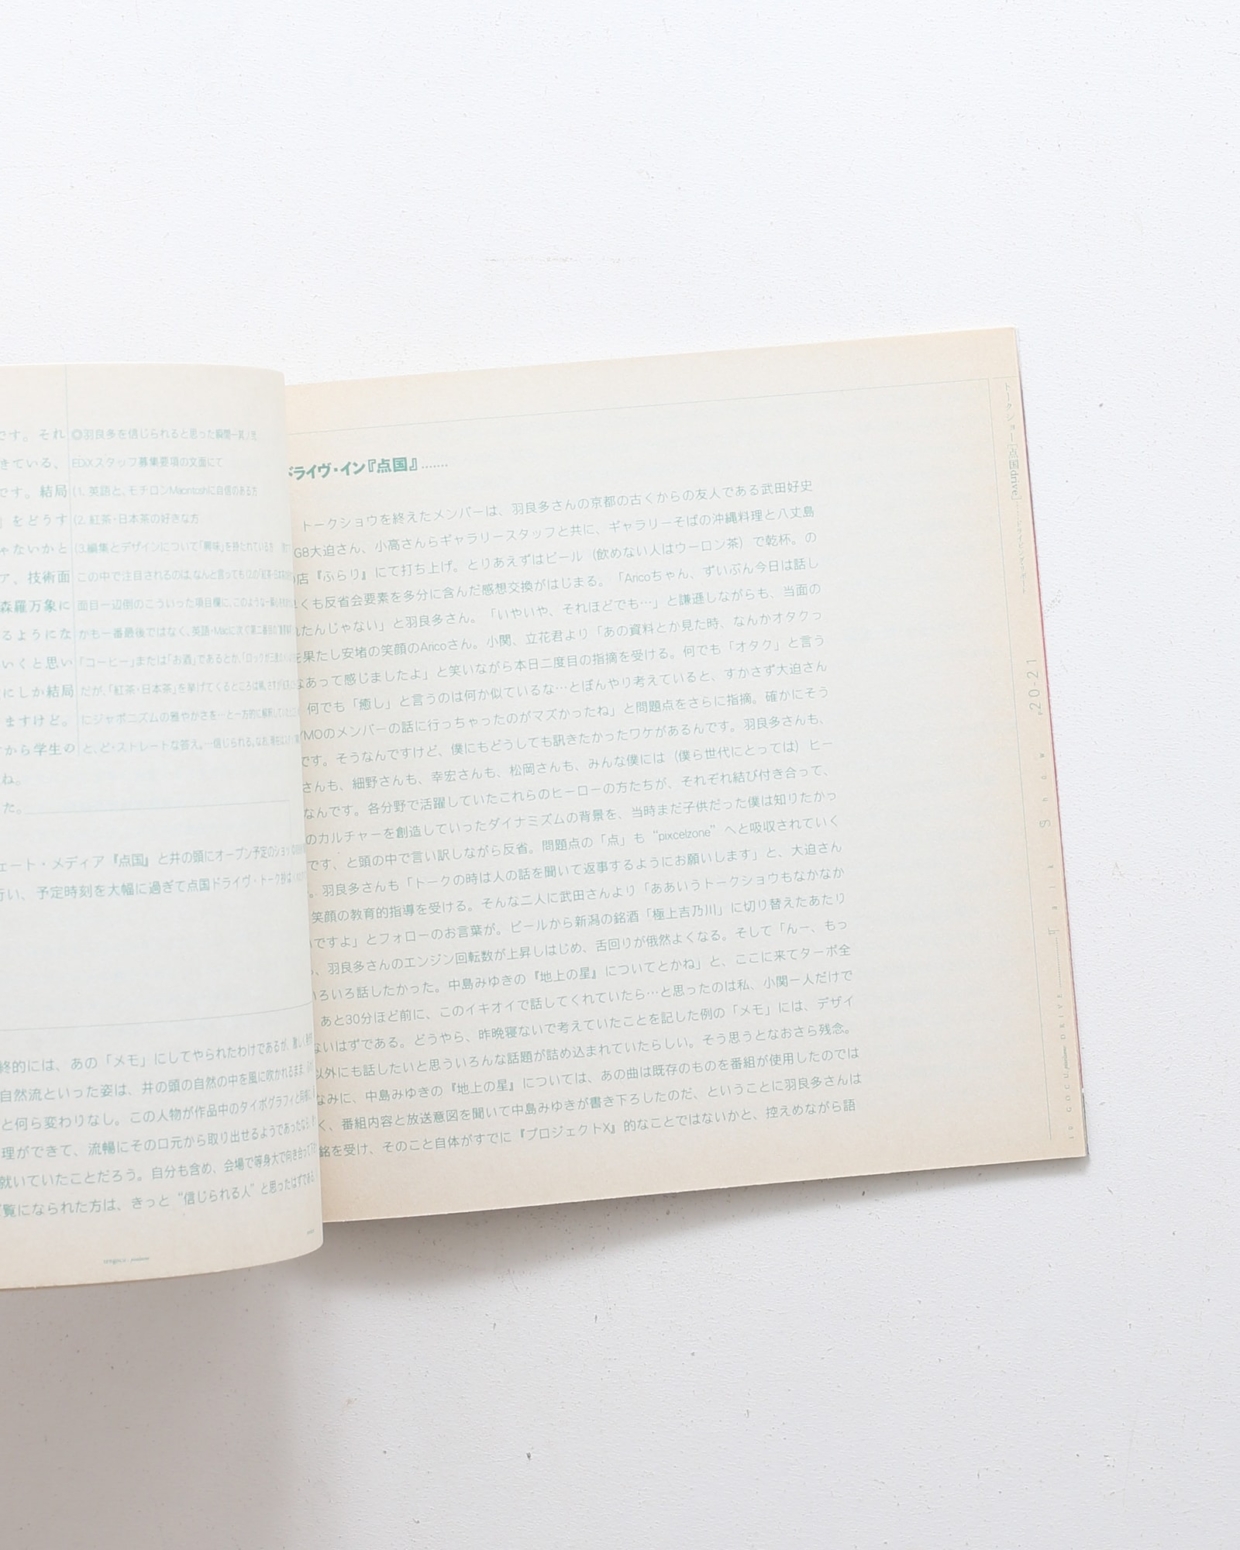 です。それ
きている、
です。結局
」をどうす
ゃないかと
ア。技術面
森羅万象に
るようにな
いくと思い
にしか結局
ますけど。
から学生の
ね。
た。
◎羽良多を信じられると思った瞬間
EDiXスタッフ募集要項の文面にて
(1. 英語と、モチロンMacintoshに自信のある方
(2. 紅茶・日本茶の好きな方
(3.編集とデザインについて「興味」を持たれている方
この中で注目されるのは、なんと言っても
面目一辺倒のこういった項目欄に、このような
かも一番最後ではなく、英語・Macに次ぐ第二番目の
「コーヒー」または「お酒」であるとか、「ロック
だが、「紅茶・日本茶」を挙げてくるところは
にジャポニズムの雅やかさを…と一方的に解釈し
と、ど・ストレートな答え。…信じられる。
ェート・メディア『点国』と井の頭にオープン予定の
行い、予定時刻を大幅に過ぎて点国ドライヴ・トーク
終的には、あの「メモ」にしてやられたわけであるが、
自然流といった姿は、井の頭の自然の中を風に吹かれるまま
と何ら変わりなし。この人物が作品中のタイポグラフィと
理ができて、流暢にその口元から取り出せるようであったなら
就いていたことだろう。自分も含め、会場で等身大で向き合って
覧になられた方は、きっと“信じられる人”と思ったはずである
ドライヴ・イン『点国』……
トークショウを終えたメンバーは、羽良多さんの京都の古くからの友人である武田好史
G8大迫さん、小高さんらギャラリースタッフと共に、ギャラリーそばの沖縄料理と八丈島
店『ふらり』にて打ち上げ。とりあえずはビール（飲めない人はウーロン茶）で乾杯。の
くも反省会要素を多分に含んだ感想交換がはじまる。「Aricoちゃん、ずいぶん今日は話し
たんじゃない」と羽良多さん。「いやいや、それほどでも…」と謙遜しながらも、当面の
を果たし安堵の笑顔のAricoさん。小関、立花君より「あの資料とか見た時、なんかオタクっ
なあって感じましたよ」と笑いながら本日二度目の指摘を受ける。何でも「オタク」と言う
何でも「癒し」と言うのは何か似ているな…とぼんやり考えていると、すかさず大迫さん
YMOのメンバーの話に行っちゃったのがマズかったね」と問題点をさらに指摘。確かにそう
です。そうなんですけど、僕にもどうしても訊きたかったワケがあるんです。羽良多さんも、
さんも、細野さんも、幸宏さんも、松岡さんも、みんな僕には（僕ら世代にとっては）ヒー
なんです。各分野で活躍していたこれらのヒーローの方たちが、それぞれ結び付き合って、
のカルチャーを創造していったダイナミズムの背景を、当時まだ子供だった僕は知りたかっ
です、と頭の中で言い訳しながら反省。問題点の「点」も“pixcelzone”へと吸収されていく
。羽良多さんも「トークの時は人の話を聞いて返事するようにお願いします」と、大迫さん
笑顔の教育的指導を受ける。そんな二人に武田さんより「ああいうトークショウもなかなか
いですよ」とフォローのお言葉が。ビールから新潟の銘酒「極上吉乃川」に切り替えたあたり
、羽良多さんのエンジン回転数が上昇しはじめ、舌回りが俄然よくなる。そして「んー、もっ
いろいろ話したかった。中島みゆきの『地上の星』についてとかね」と、ここに来てターボ全
あと30分ほど前に、このイキオイで話してくれていたら…と思ったのは私、小関一人だけで
ないはずである。どうやら、昨晩寝ないで考えていたことを記した例の「メモ」には、デザイ
以外にも話したいと思ういろんな話題が詰め込まれていたらしい。そう思うとなおさら残念。
なみに、中島みゆきの『地上の星』については、あの曲は既存のものを番組が使用したのでは
く、番組内容と放送意図を聞いて中島みゆきが書き下ろしたのだ、ということに羽良多さんは
銘を受け、そのこと自体がすでに『プロジェクトX』的なことではないかと、控えめながら語
トークショー［点国drive］
Talk Show .20-21